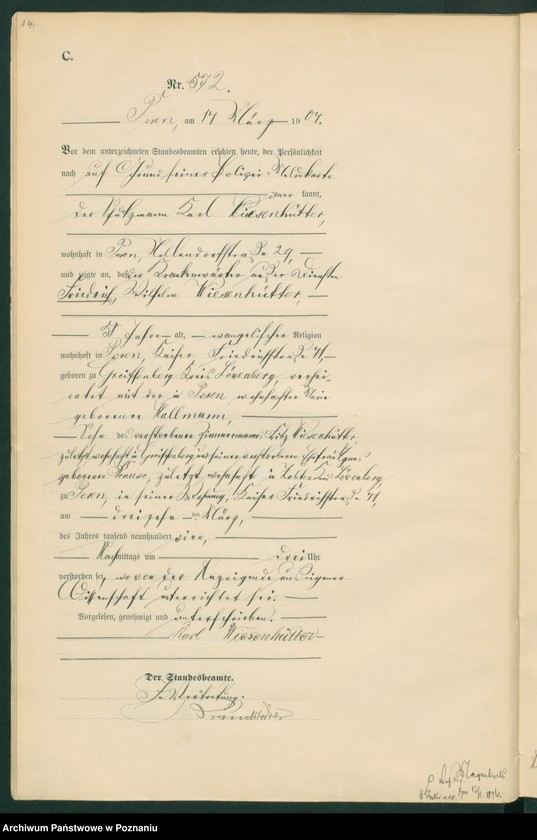 14.
C.
Nr. 572.
Posen, am 14 März 1904.
Vor dem unterzeichneten Standesbeamten erschien heute, der Persönlichkeit
nach auf Grund seiner Polizei-Meldekarte
kannt,
der Schutzmann Karl Wiesenhütter,
wohnhaft in Posen, Straße 29,
und zeigte an, daß der Krankenwärter außer Diensten
Friedrich, Wilhelm Wiesenhütter,
Jahre alt, evangelischer Religion
wohnhaft in Posen, Kaiser Friedrichstraße 41,
geboren zu Greiffenberg Kreis Löwenberg, verhei-
ratet mit der in Posen wohnhaften
geborenen Hallmann,
Sohn des verstorbenen Zimmermanns Wiesenhütter,
zuletzt wohnhaft in Greiffenberg und seiner verstorbenen Ehefrau
geborenen Krause, zuletzt wohnhaft in Löwenberg
zu Posen, in seiner Wohnung, Kaiser Friedrichstraße 41,
am dreizehn ten März,
des Jahres tausend neunhundert vier,
Nachmittags um drei Uhr
verstorben sei, wovon der Anzeigende aus eigener
Wissenschaft unterrichtet sei.
Vorgelesen, genehmigt und unterschrieben.
Karl Wiesenhütter
Der Standesbeamte.
In Vertretung.
Archiwum Państwowe w Poznaniu